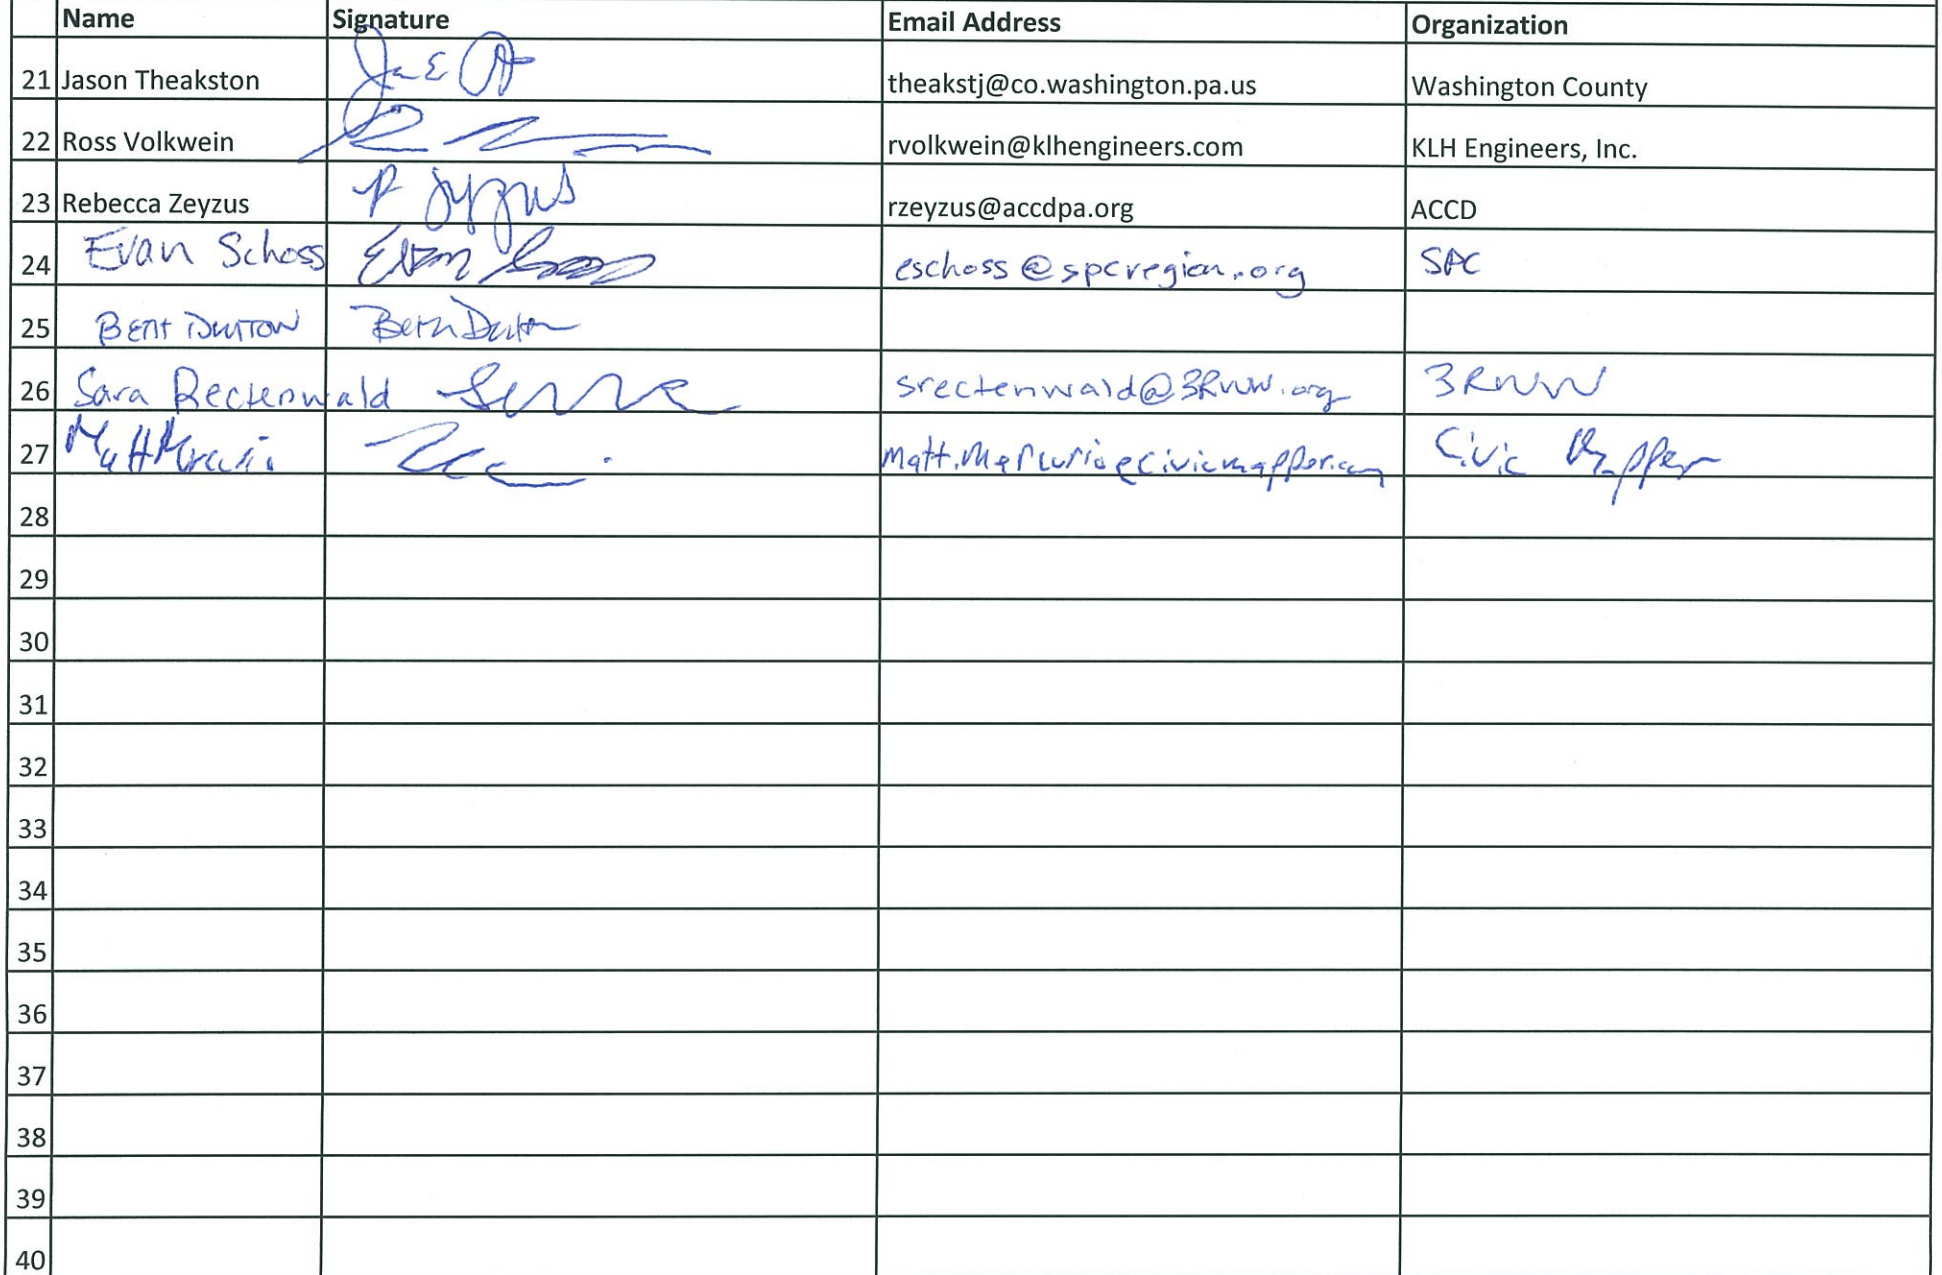 Name Signature Email Address Organization
21 Jason Theakston theakstj@co.washington.pa.us Washington County
22 Ross Volkwein rvolkwein@klhengineers.com KLH Engineers, Inc.
23 Rebecca Zeyzus rzeyzus@accdpa.org ACCD
24 Evan Schoss Evan eschoss@spcregion.org SPC
25 BETH DUTTON Beth Dutton
26 Sara Rectenwald srectenwald@3RWW.org 3RWW
27 Matt Mercurio matt.mercurio@civicmapper.com Civic Mapper
28
29
30
31
32
33
34
35
36
37
38
39
40